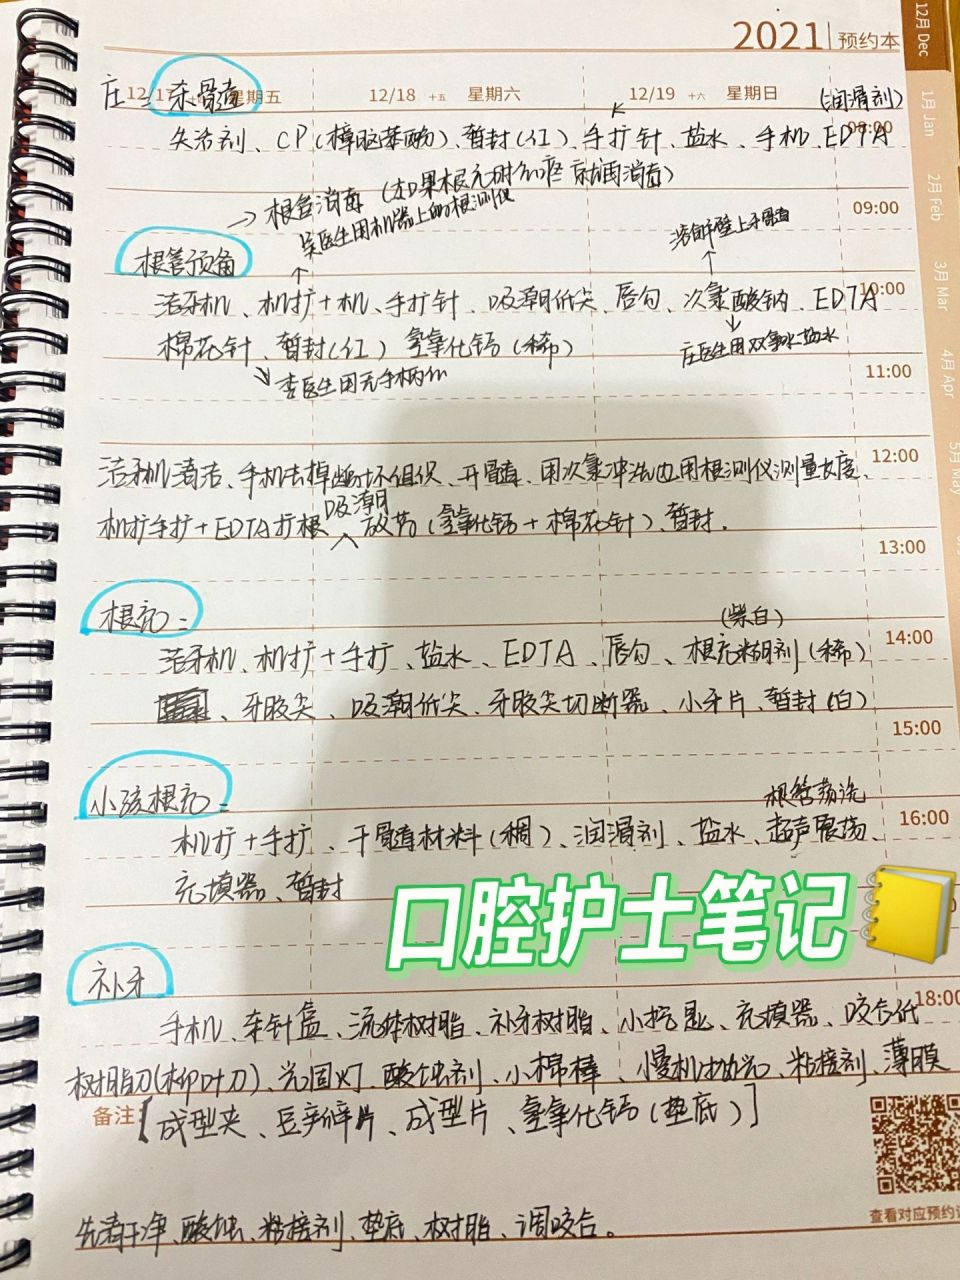 2021 预约本
12月 Dec
1月 Jan
2月 Feb
3月 Mar
4月 Apr
5月 May
12/17 星期五
12/18 十五 星期六
12/19 十六 星期日
08:00
09:00
10:00
11:00
12:00
13:00
14:00
15:00
16:00
18:00
庄= 杀骨通
(润滑剂)
失活剂、CP(樟脑苯酚)、暂封(红)、手扩针、盐水、手机、EDTA
→根管消毒(如果根尖
就消毒)
吴医生用机器上的根测仪
根管预备
洁牙机、机扩+机、手扩针、吸潮纸尖、唇勾、次氯酸钠、EDTA
棉花针、暂封(红) 氢氧化钙(稀)
庄医生用双氧水盐水
李医生用无手柄
洁牙机清洁、手机去掉断坏组织、开髓、用次氯冲洗边用根测仪测量长度、
吸潮
机扩手扩+EDTA扩根 放药(氢氧化钙+棉花针)、暂封.
根充=
(紫白)
洁牙机、机扩+手扩、盐水、EDTA、唇勾、根充糊剂(稀)
、牙胶尖、吸潮纸尖、牙胶尖切断器、小牙片、暂封(白)
小孩根充=
根管荡洗
机扩+手扩、干髓材料(稠)、润滑剂、盐水、超声震荡、
充填器、暂封
口腔护士笔记
补牙
手机、车针盒、流体树脂、补牙树脂、小挖匙、充填器、咬合纸
树脂刀(柳叶刀)、光固灯、酸蚀剂、小棉棒、慢机抛光、粘接剂、薄膜
备注:
[成型夹、豆瓣碎片、成型片、氢氧化钙(垫底)]
先清干净、酸蚀、粘接剂、垫底、树脂、调咬合。
查看对应预约